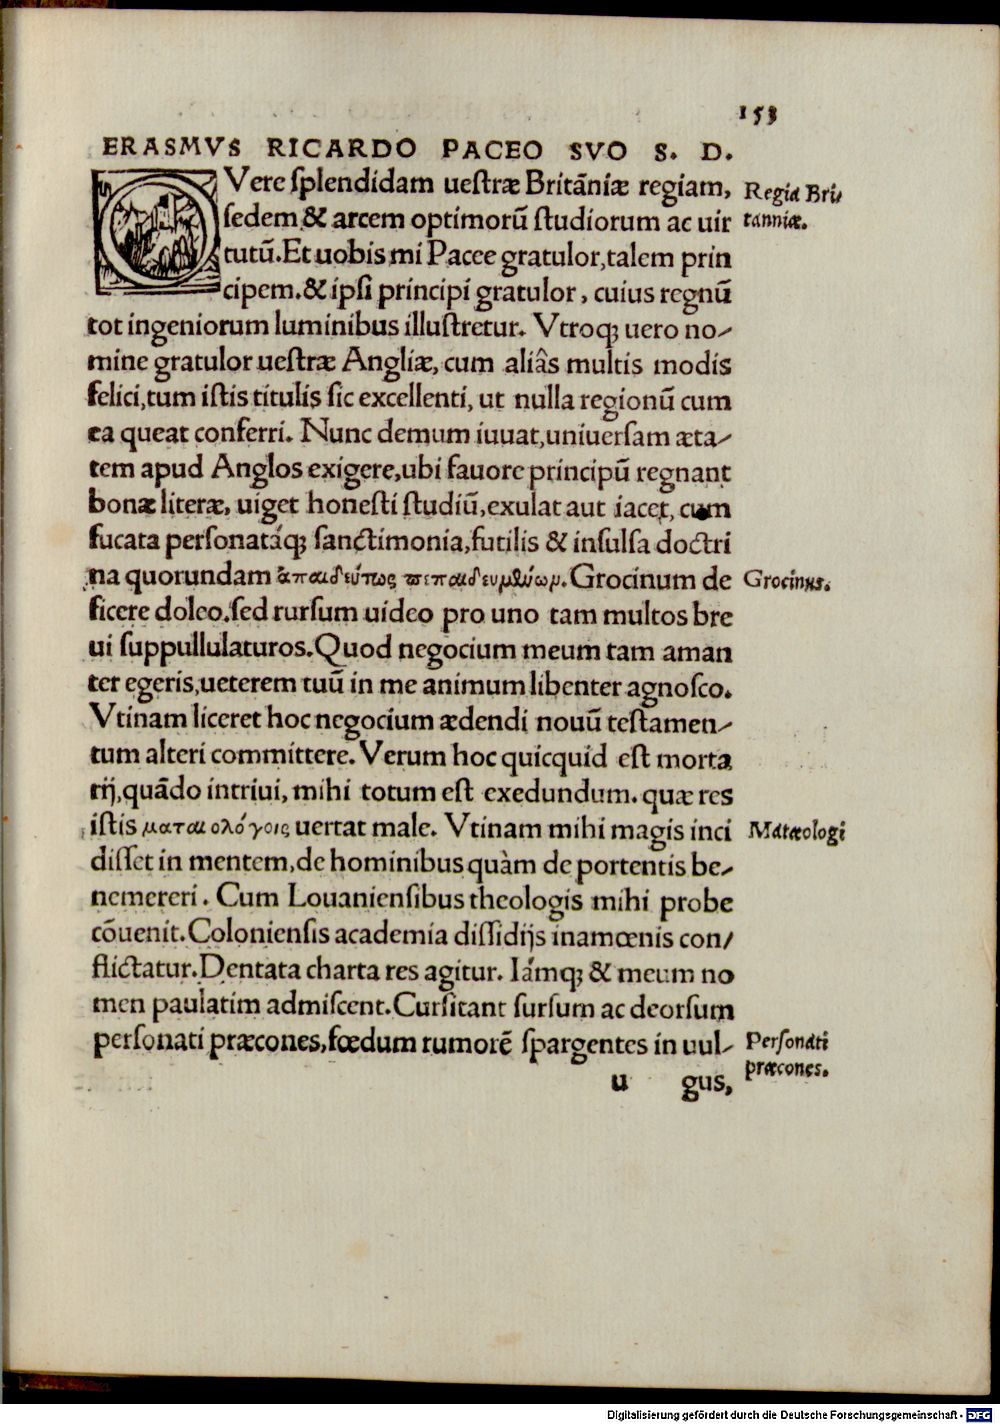 153
ERASMVS RICARDO PACEO SVO S. D.
OVere splendidam uestræ Britãniæ regiam,
Regia Bri⸗
sedem & arcem optimorũ studiorum ac uir
tanniæ.
tutũ. Et uobis mi Pacee gratulor, talem prin
cipem. & ipsi principi gratulor, cuius regnũ
tot ingeniorum luminibus illustretur. Vtroq; uero no⸗
mine gratulor uestræ Angliæ, cum aliâs multis modis
felici, tum istis titulis sic excellenti, ut nulla regionũ cum
ea queat conferri. Nunc demum iuuat, uniuersam æta⸗
tem apud Anglos exigere, ubi fauore principũ regnant
bonæ literæ, uiget honesti studiũ, exulat aut iacet, cum
fucata personatáq; sanctimonia, futilis & insulsa doctri
na quorundam ἀπαιδεύτως πεπαιδευμένωμ. Grocinum de
Grocinus.
ficere doleo. sed rursum uideo pro uno tam multos bre
ui suppullulaturos. Quod negocium meum tam aman
ter egeris, ueterem tuũ in me animum libenter agnosco.
Vtinam liceret hoc negocium ædendi nouũ testamen⸗
tum alteri committere. Verum hoc quicquid est morta
rij, quãdo intriui, mihi totum est exedundum. quæ res
istis ματαιολόγοις uertat male. Vtinam mihi magis inci
Matæologi
disset in mentem, de hominibus quàm de portentis be⸗
nemereri. Cum Louaniensibus theologis mihi probe
cõuenit. Coloniensis academia dissidijs inamœnis con⸗
flictatur. Dentata charta res agitur. Iámq; & meum no
men paulatim admiscent. Cursitant sursum ac deorsum
personati præcones, fœdum rumorẽ spargentes in uul⸗
Personati
præcones.
u gus,
Digitalisierung gefördert durch die Deutsche Forschungsgemeinschaft - DFG